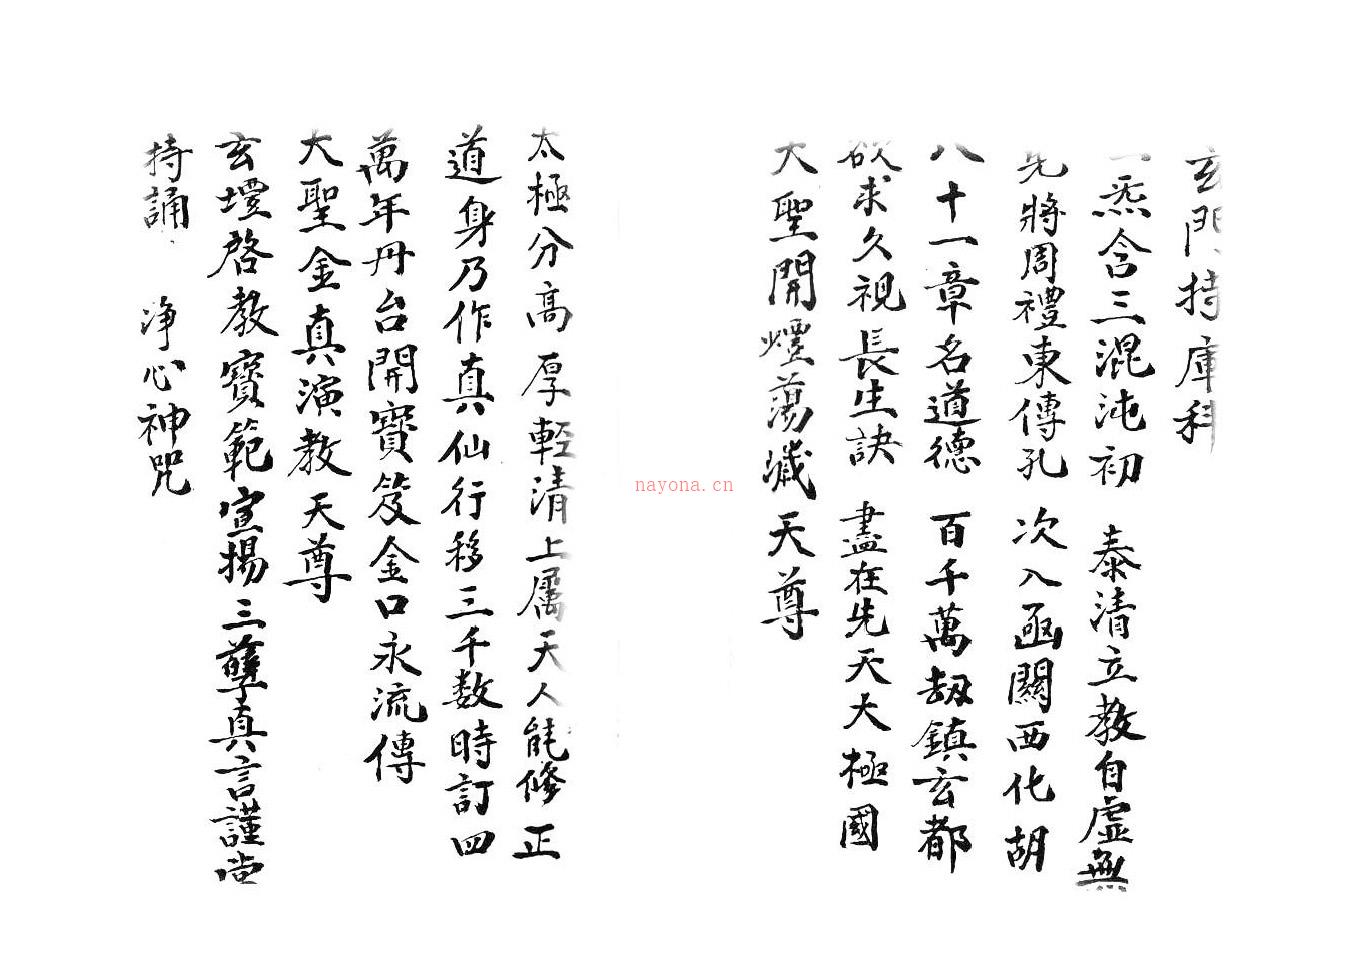 玄門持庫科
一炁含三混沌初 泰清立教自虛無
先將周禮東傳孔 次入函關西化胡
八十一章名道德 百千萬劫鎮玄都
欲求久視長生訣 盡在先天大極國
大聖開壇蕩穢天尊
太極分高厚輕清上屬天人能修正
道身乃作真仙行移三千数時訂四
萬年丹台開寶笈金口永流傳
大聖金真演教天尊
玄壇啓教寶範宣揚三孽真言謹當
持誦 净心神咒
nayona.cn